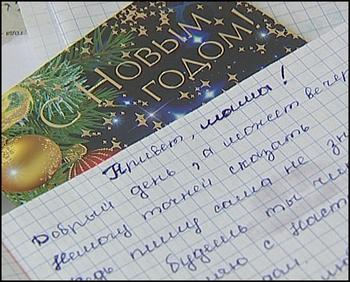 С НОВЫМ
ГОДОМ!
Привет, мама!
Добрый день, а может вечер
Немогу точней сказать
ведь пишу сама не зн
будешь ты чи
с Наст